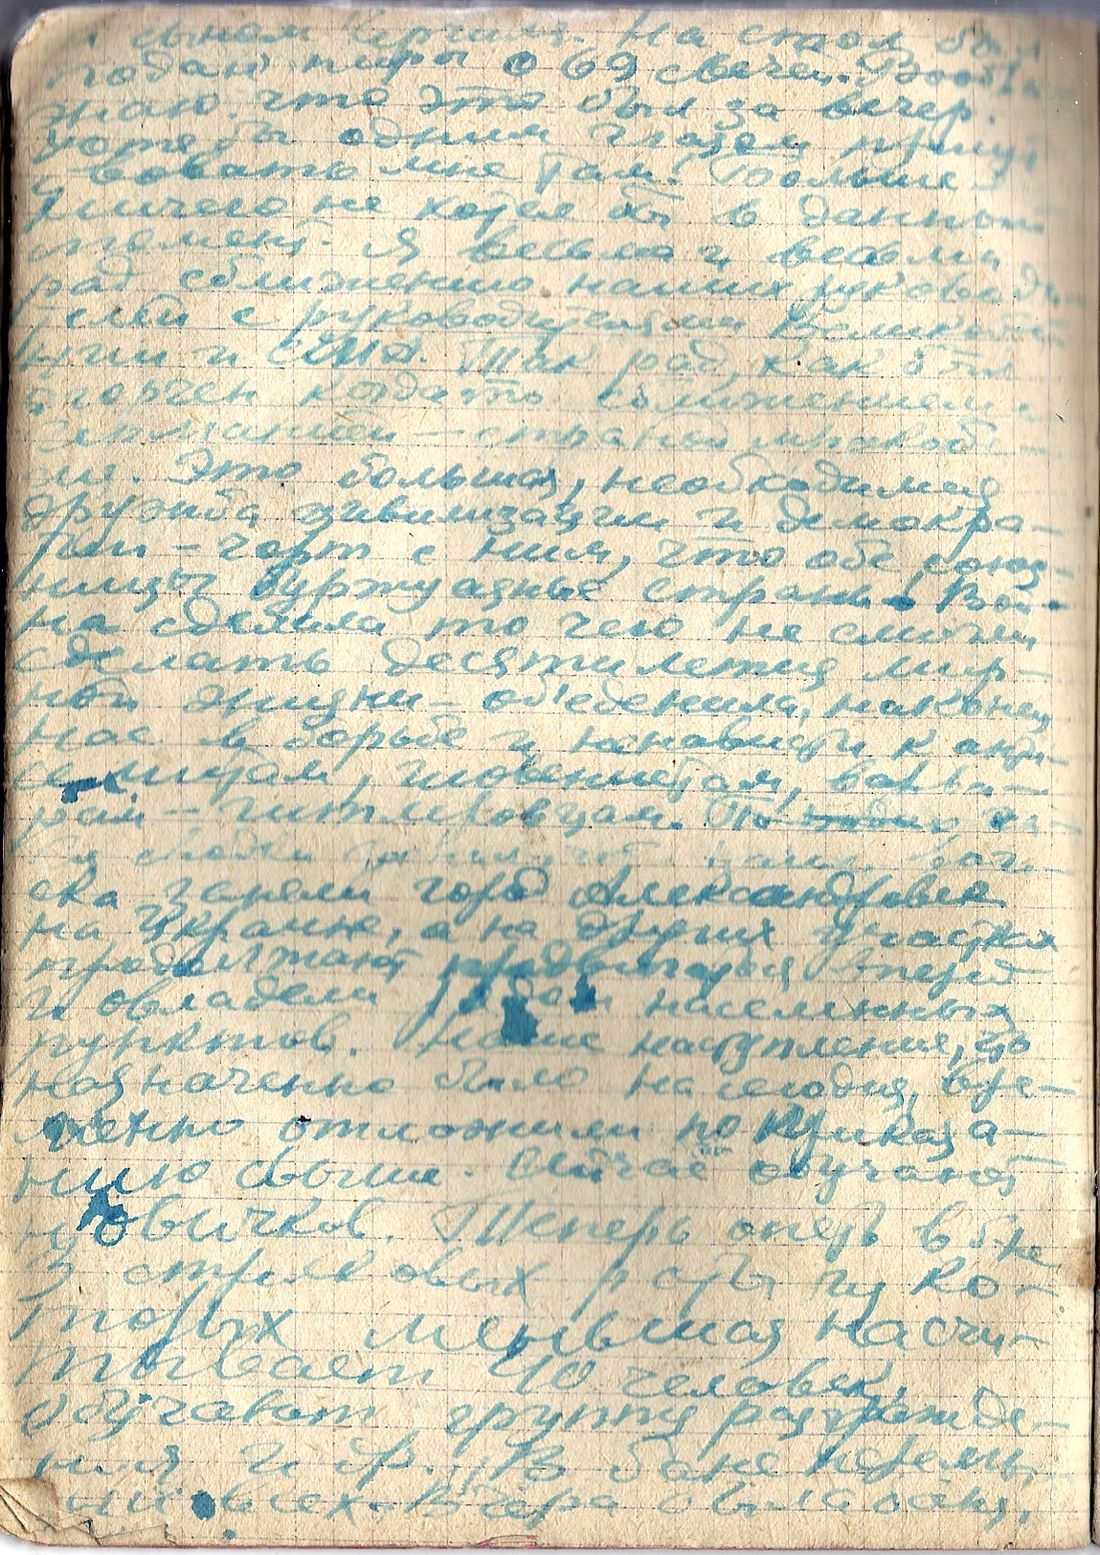 дан Черчиля. На стол был
подан пирог о 69 свечей. Вооб
знаю что это был за вечер.
хотя бы одним глазом присут
ствовать мне там! Больше
ничего не хотел бы в данный
момент. Я весьма и весьма
рад сближению наших руководи-
телей с руководителями Великобрита
нии и США. Так рад, как был
огорчен когда-то сближением с
Германией – страной мракобе
сия. Это большая, необходимая
дружба цивилизации и демокра-
тии – чорт с ним, что обе союз-
ницы буржуазные страны. Вой-
на сделала то чего не смогли
сделать десятилетия мир-
ной жизни – объеденила, наконец
нас в борьбе и ненависти к анти-
семитам, людоедам, варва-
рам – гитлеровцам.
наши вой-
ска заняли город Александрия
на Украине, а на других участках
продолжают продвигаться вперед
и овладели рядом населенных
пунктов. Наше наступление, что
назначенно было на сегодня, вре-
менно отложили по приказа-
нию свыше. Сейчас обучают
новичков. Теперь опять в б-не
3 стрелковых роты из ко-
торых меньшая насчи-
тывает 40 человек.
Обучают группы разгражде-
ния и др. В бане перемы-
ли всех. Вчера была баня,